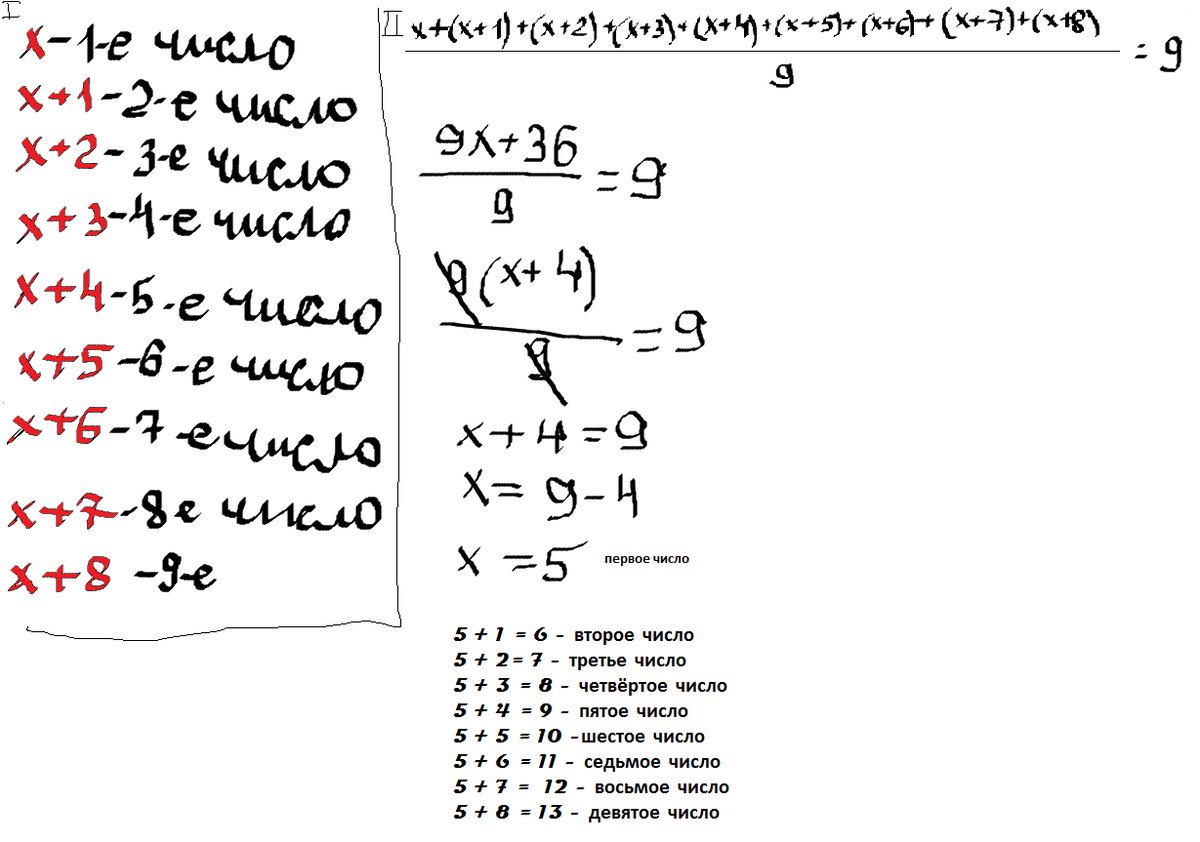 I
x - 1-е число
x+1 - 2-е число
x+2 - 3-е число
x+3 - 4-е число
x+4 - 5-е число
x+5 - 6-е число
x+6 - 7-е число
x+7 - 8-е число
x+8 - 9-е
II
x+(x+1)+(x+2)+(x+3)+(x+4)+(x+5)+(x+6)+(x+7)+(x+8)
9
= 9
9x+36
9
= 9
9(x+4)
9
= 9
x+4=9
x=9-4
x=5 первое число
5 + 1 = 6 - второе число
5 + 2 = 7 - третье число
5 + 3 = 8 - четвёртое число
5 + 4 = 9 - пятое число
5 + 5 = 10 - шестое число
5 + 6 = 11 - седьмое число
5 + 7 = 12 - восьмое число
5 + 8 = 13 - девятое число